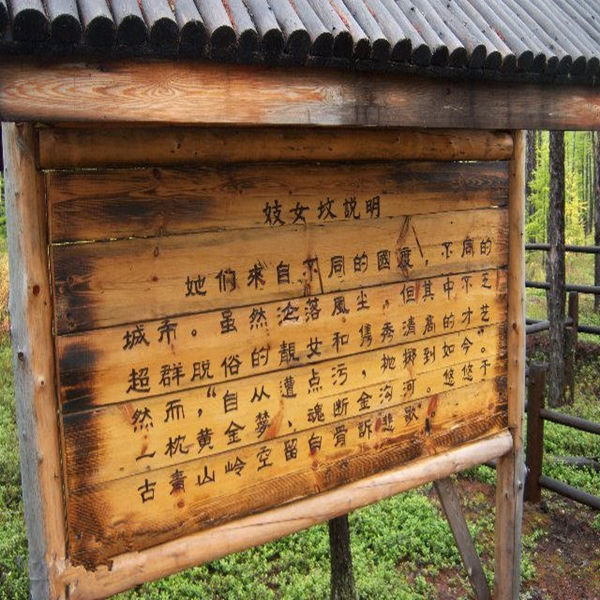 妓女坟説明
她们来自不同的國度，不同的
城市。虽然沦落風尘，但其中不乏
超群脱俗的靓女和隽秀清高的才艺
然而，“自从遭点污，抛掷到如今”。
一枕黄金梦、魂断金沟河。悠悠千
古山岭空留白骨訴悲歌。